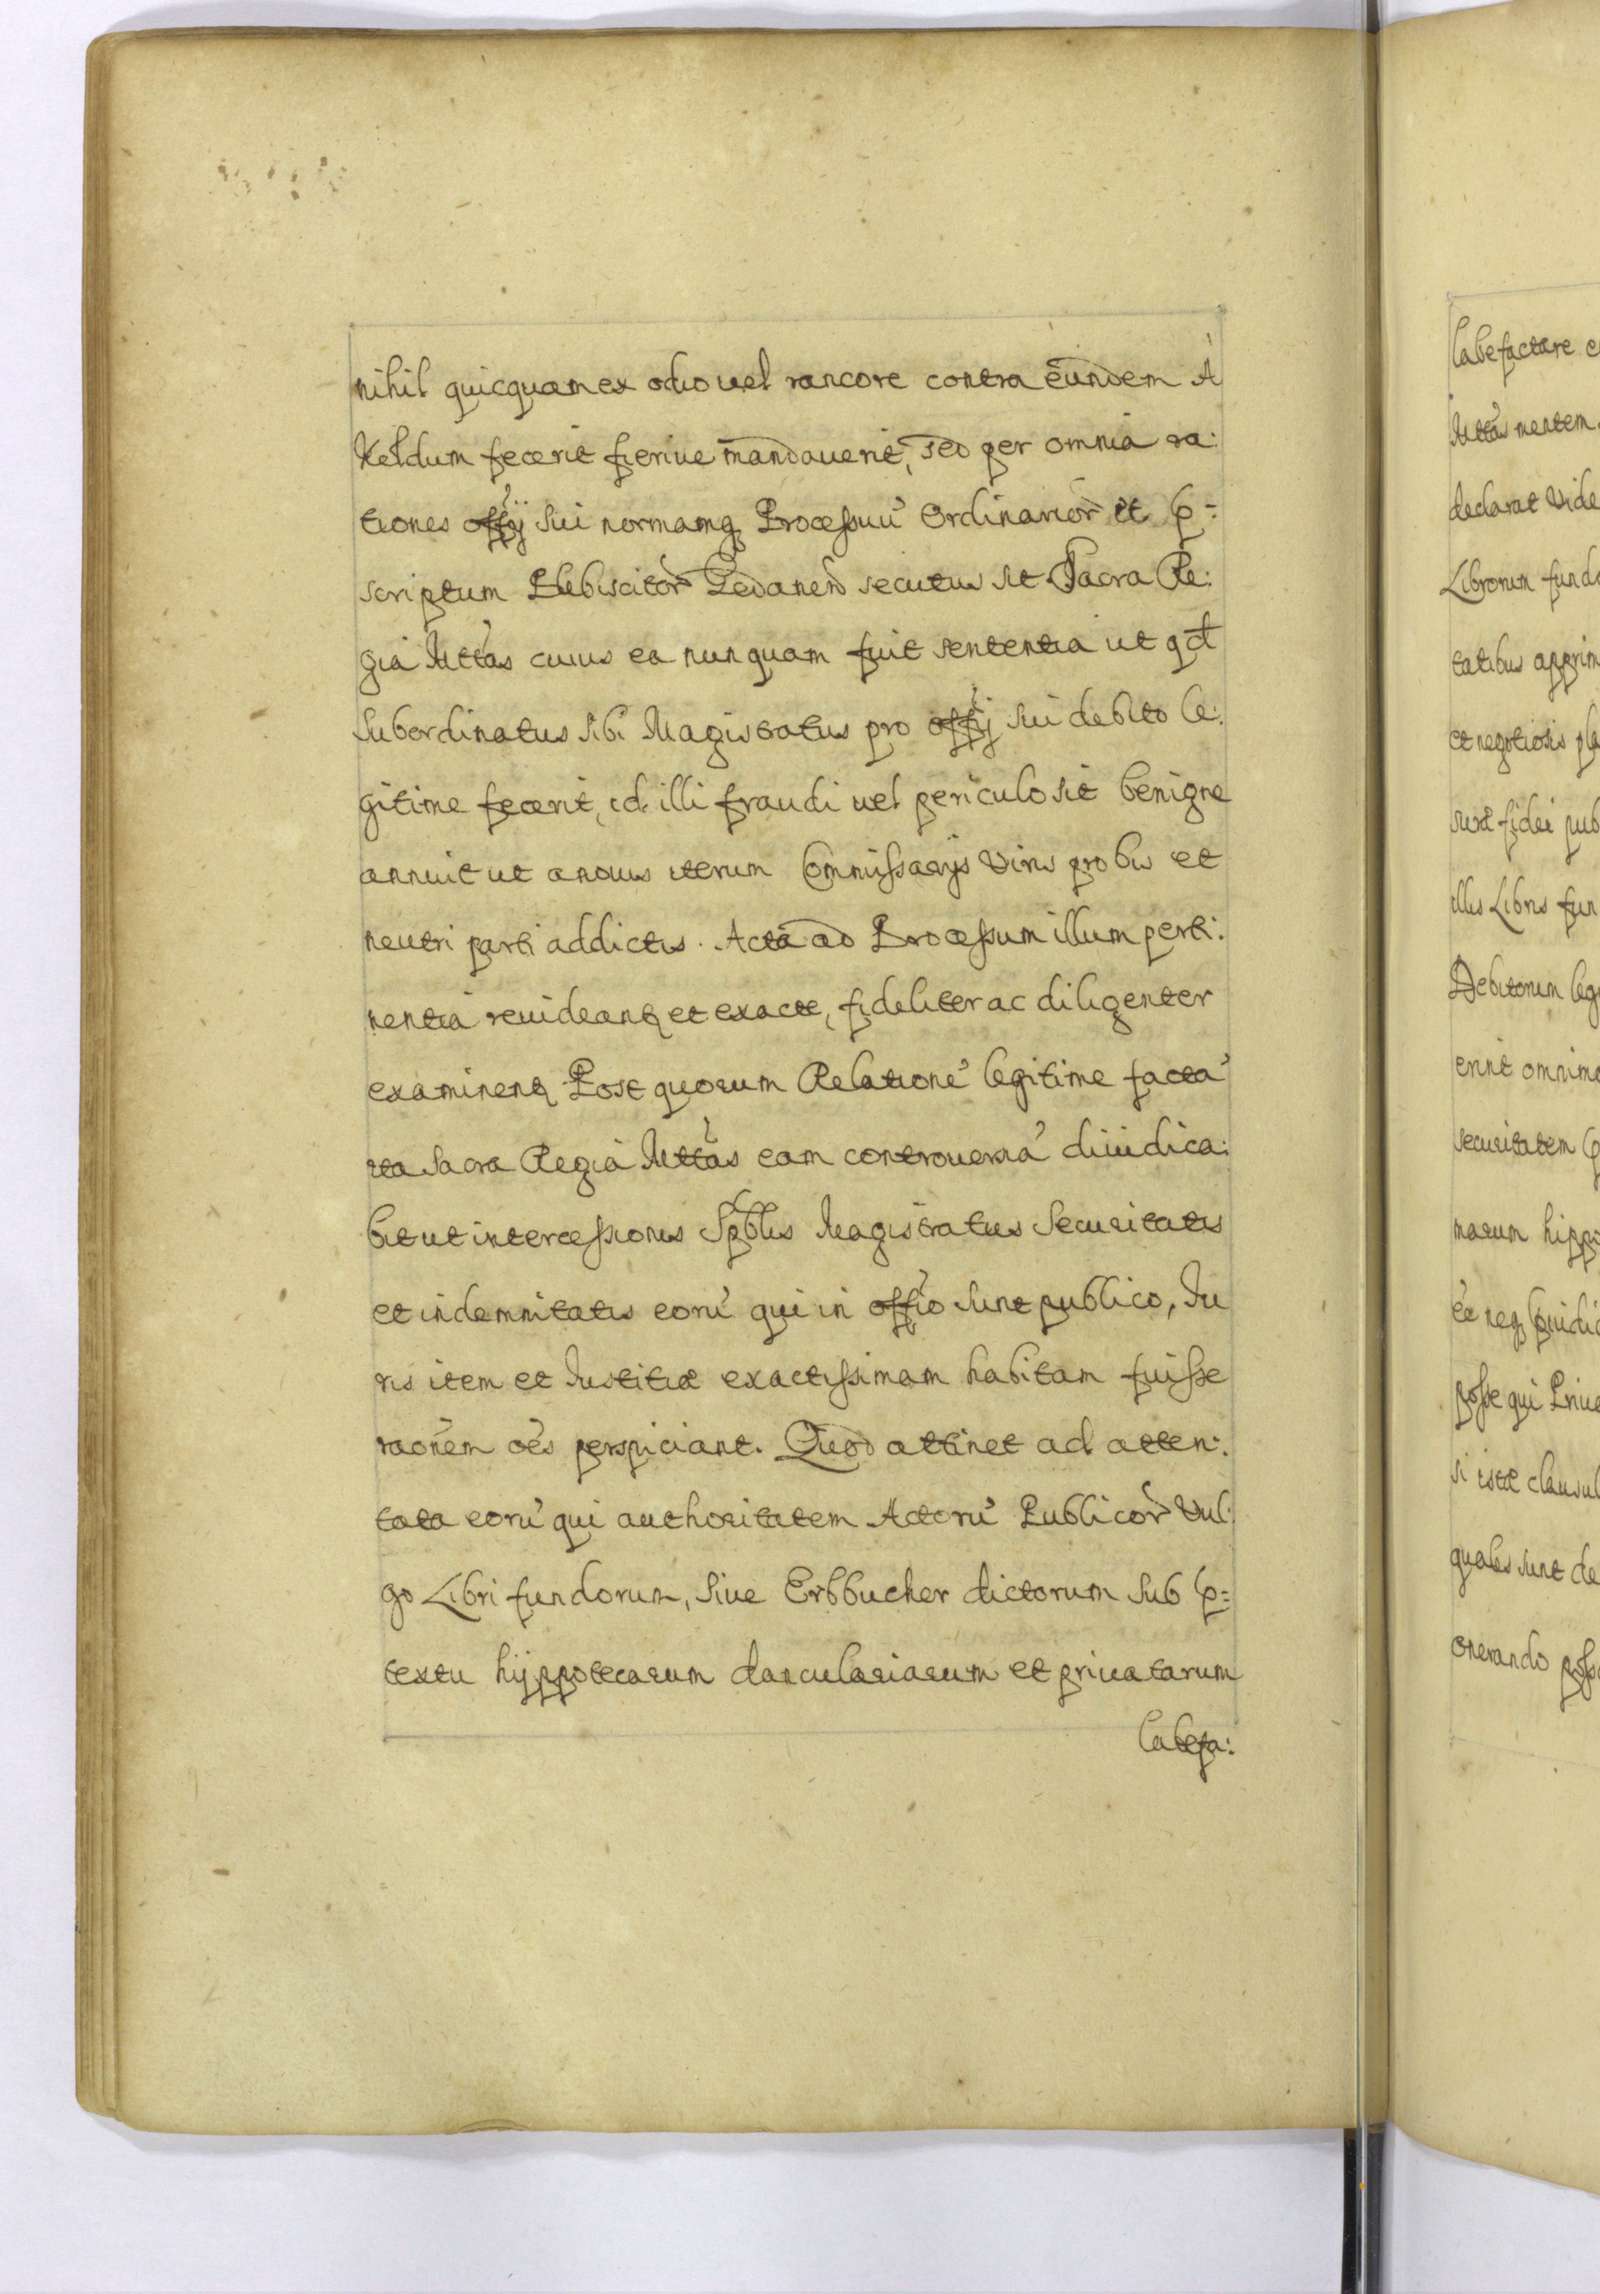 nihil quicquam ex odio uel rancore contra eundem A
Keldum fecerit fieriue mandauerit, sed per omnia ra:
tiones offij sui normamq Processuu Ordinarior et p=
scriptum Plebiscitor Gedanen secutus sit Sacra Re:
gia Mttas cuius ea nunquam fuit sententia ut qd
Subordinatus sibi Magistratus pro offij sui debito le:
gitime fecerit, id illi fraudi uel periculo sit benigne
annuit ut a nouis iterum Commissarijs Viris probis et
neutri parti addictis. Acta ad Processum illum perti:
nentia reuideantq et exacte, fideliter ac diligenter
examinentq Post quorum Relatione legitime facta
ita Sacra Regia Mttas eam controuersia diiudica:
bit ut intercessionis Spblis Magistratus Securitatis
et indemnitatis eoru qui in offio sunt publico, Iu
ris item et Iustitiæ exactissimam habitam fuisse
raonem oes perspiciant. Quod attinet ad atten:
tata eoru qui authoritatem Actoru Publicor Vul:
go Libri fundorum, siue Erbbucher dictorum sub p=
textu hyppotecarum clancularianum et priuatarum
labefa:
labefactare
Mttas mentem
declarat Vide
Librorum fund
tatibus apprim
et negotiosis pla
suæ fidei pub
illis Libris fun
Debitorum leg
erint omnimo
securitatem p
marum hippo
ee neq piudic
posse qui Priue
si istæ clausul
quales sunt de
onerando poss